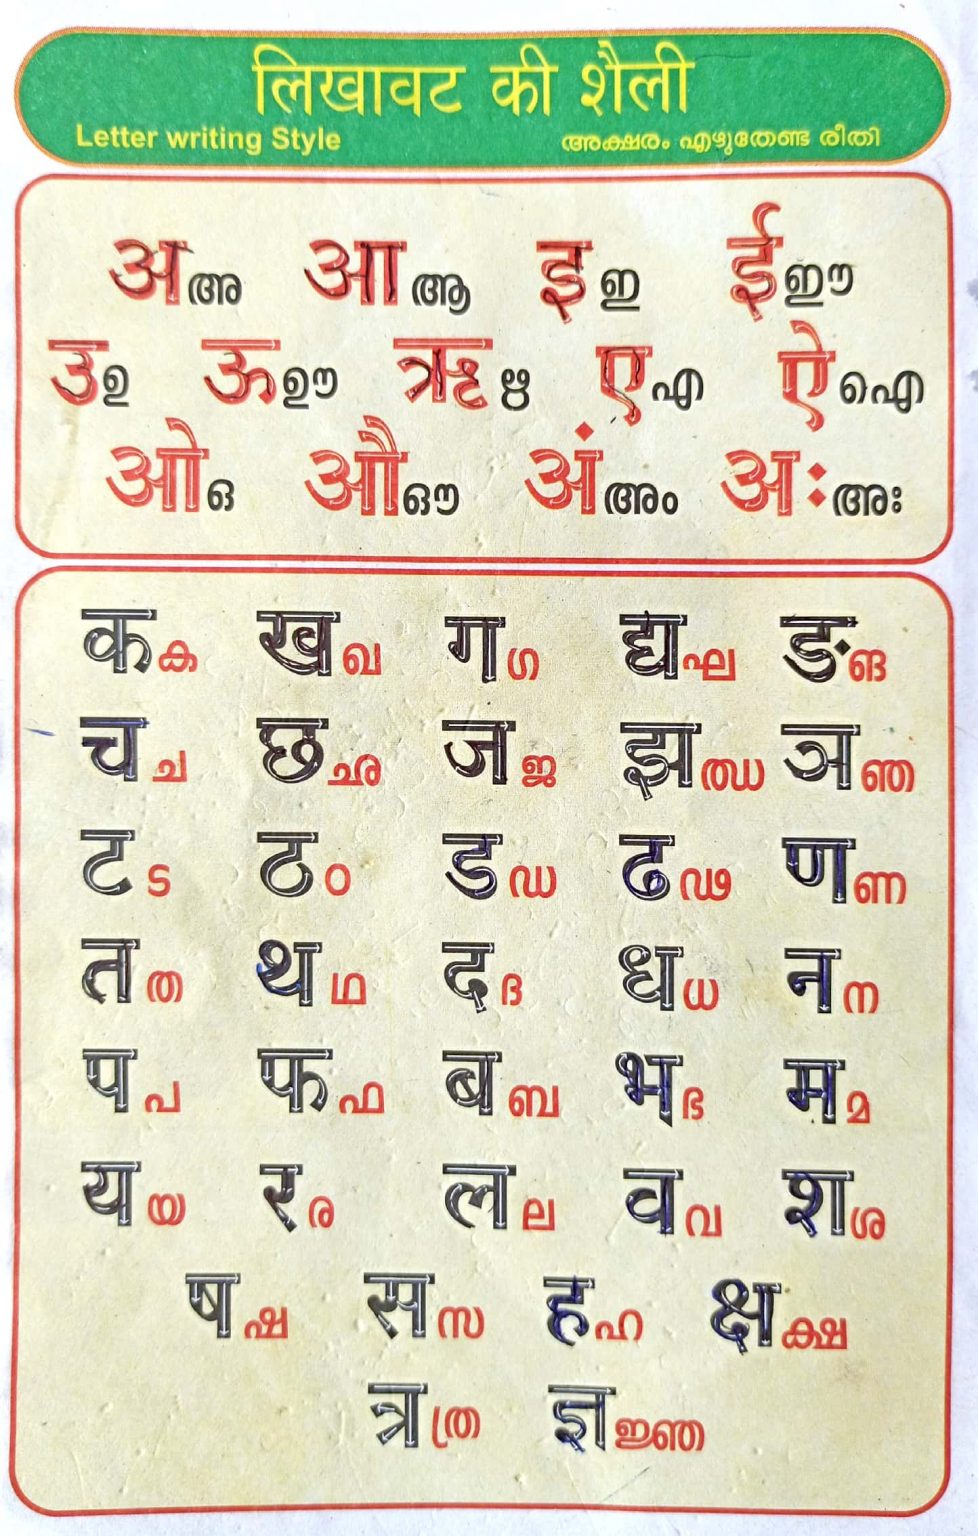 लिखावट की शैली
Letter writing Style അക്ഷരം എഴുതേണ്ട രീതി
अ അ आ ആ इ ഇ ई ഈ
उ ഉ ऊ ഊ ऋ ഋ ए എ ऐ ഐ
ओ ഒ औ ഔ अं അം अः അഃ
क ക ख ഖ ग ഗ द्य ഘ ङ ങ
च ച छ ഛ ज ജ झ ഝ ञ ഞ
ट ട ठ ഠ ड ഡ ढ ഢ ण ണ
त ത थ ഥ द ദ ध ധ न ന
प പ फ ഫ ब ബ भ ഭ म മ
य യ र ര ल ല व വ श ശ
ष ഷ स സ ह ഹ क्ष ക്ഷ
त्र ത്ര ज्ञ ജ്ഞ